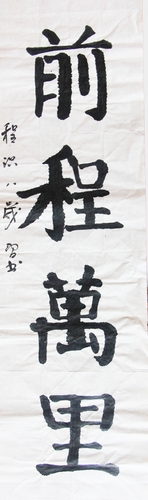 前程萬里
程浤八歲習书